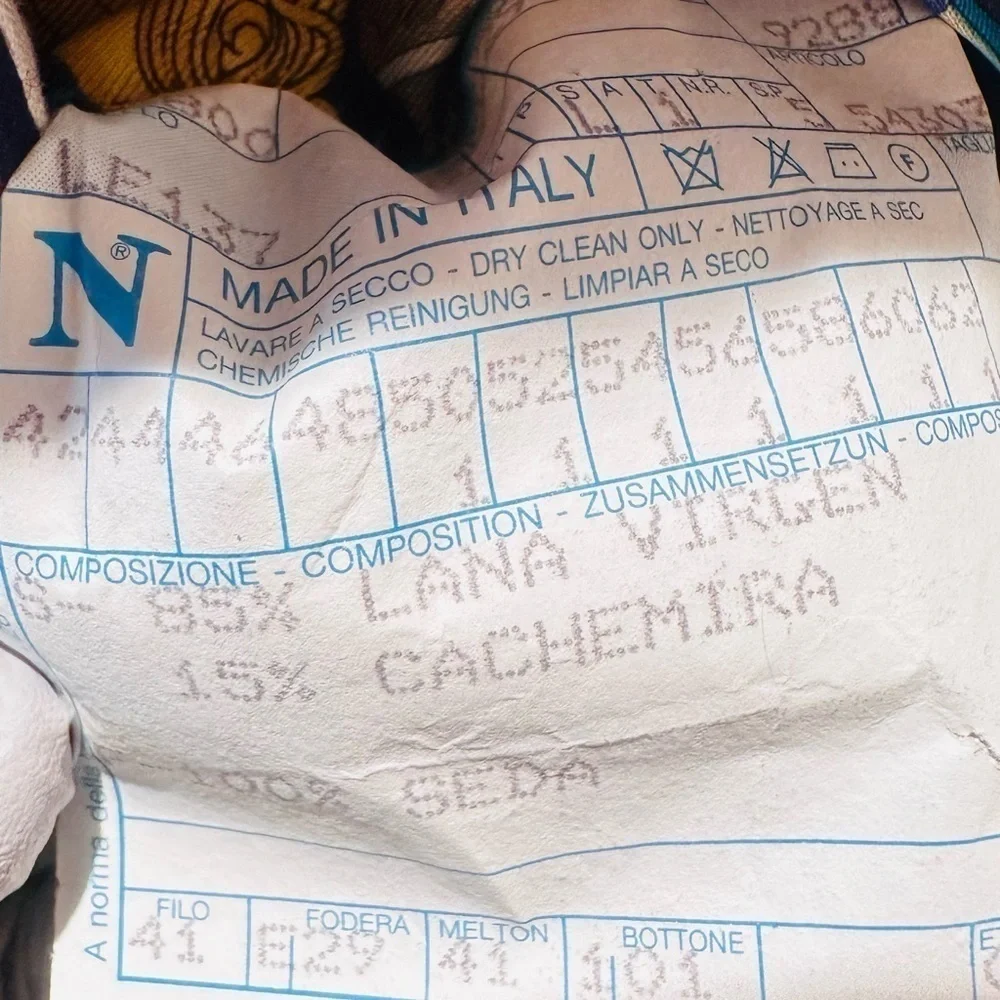 9288
ARTICOLO
S A T. N.R. S.P.
1 1 5
LE137
MADE IN ITALY
F
N®
LAVARE A SECCO - DRY CLEAN ONLY - NETTOYAGE A SEC
CHEMISCHE REINIGUNG - LIMPIAR A SECO
50 52 54 56 58 60 62
1 1 1 1 1 1 1
COMPOSIZIONE - COMPOSITION - ZUSAMMENSETZUN - COMPOS
85% LANA VIRGEN
15% CACHEMIRA
100% SEDA
A norma della
FILO FODERA MELTON BOTTONE
41 E29 41 101